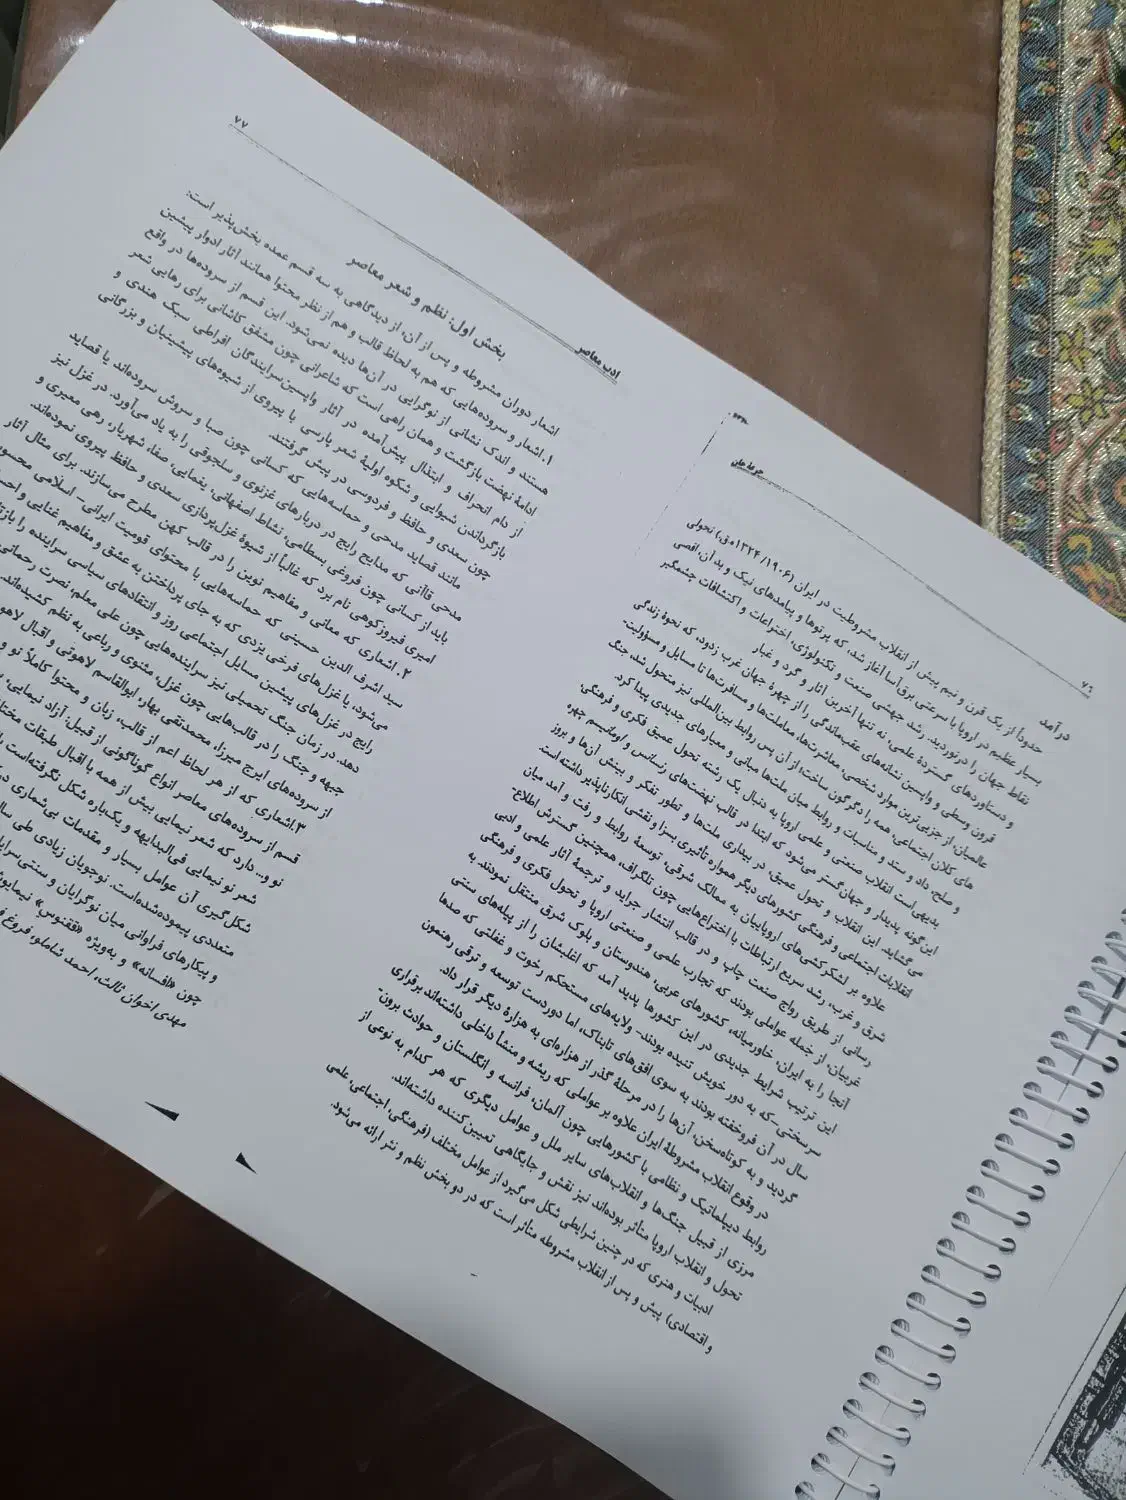 ۷۶
درآمد
حدوداً از یک قرن و نیم پیش از انقلاب مشروطیت در ایران (۱۹۰۶/ ۱۳۲۴ه‍.ق) تحولی
بسیار عظیم در اروپا با سرعتی برق‌آسا آغاز شد، که پرتوها و پیامدهای نیک و بد آن، اقصی
نقاط جهان را درنوردید. رشد جهشی صنعت و تکنولوژی، اختراعات و اکتشافات چشمگیر
و دستاوردهای گستردهٔ علمی، نه تنها آخرین آثار و گرد و غبار
قرون وسطی و واپسین نشانه‌های عقب‌ماندگی را از چهرهٔ جهان غرب زدود، که نحوهٔ زندگی
عالمیان، از جزیی‌ترین موارد شخصی معاشرت‌ها، معاملت‌ها و مسافرت‌ها تا مسایل و مسؤولیت‌
های کلان اجتماعی، همه را دگرگون ساخت؛ از آن پس روابط بین‌المللی نیز متحول شد، جنگ
و صلح، داد و ستد و مناسبات و روابط میان ملت‌ها مبانی و معیارهای جدیدی پیدا کرد.
بدیهی است انقلاب صنعتی و علمی اروپا به دنبال یک رشته تحول عمیق فکری و فرهنگی
این‌گونه پدیدار و جهان‌گستر می‌شود که ابتدا در قالب نهضت‌های رنسانس و اومانیسم چهره
می‌گشاید. این انقلاب و تحول عمیق، در بیداری ملت‌ها و تطور تفکر و بینش آن‌ها و بروز
انقلابات اجتماعی و فرهنگی کشورهای دیگر همواره تأثیری بسزا و نقشی انکارناپذیر داشته است.
علاوه بر لشکرکشی‌های اروپاییان به ممالک شرقی، توسعهٔ روابط و رفت و آمد میان
شرق و غرب، رشد سریع ارتباطات با اختراع‌هایی چون تلگراف، همچنین گسترش اطلاع‌
رسانی از طریق رواج صنعت چاپ و در قالب انتشار جراید و ترجمهٔ آثار علمی و ادبی
غربیان، از جمله عواملی بودند که تجارب علمی و صنعتی اروپا و تحول فکری و فرهنگی
آنجا را به ایران، خاورمیانه، کشورهای عربی، هندوستان و بلوک شرق منتقل نمودند. به
این ترتیب شرایط جدیدی در این کشورها پدید آمد که اغلبشان را از پیله‌های سنتی
سرسختی ـ که به دور خویش تنیده بودند ـ ولایه‌های مستحکم رخوت و غفلتی که صدها
سال در آن فروخفته بودند به سوی افق‌های تابناک، اما دوردست توسعه و ترقی رهنمون
گردید و به کوتاه‌سخن، آن‌ها را در مرحلهٔ گذر از هزاره‌ای به هزارهٔ دیگر قرار داد.
در وقوع انقلاب مشروطهٔ ایران علاوه بر عواملی که ریشه و منشأ داخلی داشته‌اند برقراری
روابط دیپلماتیک و نظامی با کشورهایی چون آلمان، فرانسه و انگلستان و حوادث برون‌
مرزی از قبیل جنگ‌ها و انقلاب‌های سایر ملل و عوامل دیگری که هر کدام به نوعی از
تحول و انقلاب اروپا متأثر بوده‌اند نیز نقش و جایگاهی تعیین‌کننده داشته‌اند.
ادبیات و هنری که در چنین شرایطی شکل می‌گیرد از عوامل مختلف (فرهنگی، اجتماعی، علمی
و اقتصادی) پیش و پس از انقلاب مشروطه متأثر است که در دو بخش نظم و نثر ارائه می‌شود.
ادب معاصر
۷۷
بخش اول: نظم و شعر معاصر
اشعار دوران مشروطه و پس از آن، از دیدگاهی به سه قسم عمده بخش‌پذیر است:
۱. اشعار و سروده‌هایی که هم به لحاظ قالب و هم از نظر محتوا همانند آثار ادوار پیشین
هستند و اندک نشانی از نوگرایی در آن‌ها دیده نمی‌شود. این قسم از سروده‌ها در واقع
ادامهٔ نهضت بازگشت و همان راهی است که شاعرانی چون مشفق کاشانی برای رهایی شعر
از دام انحراف و ابتذال پیش‌آمده در آثار واپسین‌سرایندگان افراطی سبک هندی و
بازگرداندن شیوایی و شکوه اولیهٔ شعر پارسی با پیروی از شیوه‌های پیشینیان و بزرگانی
چون سعدی و حافظ و فردوسی در پیش گرفتند.
مانند قصاید مدحی و حماسه‌هایی که کسانی چون صبا و سروش سروده‌اند یا قصاید
مدحی قاآنی که مدایح رایج در دربارهای غزنوی و سلجوقی را به یاد می‌آورد. در غزل نیز
باید از کسانی چون فروغی بسطامی، نشاط اصفهانی، یغمایی، صفا، شهریار، رهی معیری و
امیری فیروزکوهی نام برد که غالباً از شیوهٔ غزل‌پردازی سعدی و حافظ پیروی نموده‌اند.
۲. اشعاری که معانی و مفاهیم نوین را در قالب کهن مطرح می‌سازند. برای مثال آثار
سید اشرف الدین حسینی که حماسه‌هایی با محتوای قومیت ایرانی ـ اسلامی محسوب
می‌شود، یا غزل‌های فرخی یزدی که به جای پرداختن به عشق و مفاهیم غنایی و
رایج در غزل‌های پیشین مسایل اجتماعی روز و انتقادهای سیاسی سراینده را
دهد. در زمان جنگ تحمیلی نیز سراینده‌هایی چون علی معلم، نصرت رحمانی
جبهه و جنگ را در قالب‌هایی چون غزل، مثنوی و رباعی به نظم کشیده‌اند.
از سروده‌های ایرج میرزا، محمدتقی بهار، ابوالقاسم لاهوتی و اقبال
۳. اشعاری که از هر لحاظ اعم از قالب، زبان و محتوا کاملاً نو و
قسم از سروده‌های معاصر انواع گوناگونی از قبیل: آزاد نیمایی،
نو و... دارد که شعر نیمایی بیش از همه با اقبال طبقات
شعر نو نیمایی فی‌البدایهه و یک‌باره شکل نگرفته‌است
شکل‌گیری آن عوامل بسیار و مقدمات بی‌شماری
متعددی پیموده‌شده‌است. نوجویان زیادی طی
و پیکارهای فراوانی میان نوگرایان و
چون «افسانه» و به‌ویژه «ققنوس»
مهدی اخوان ثالث، احمد شاملو، فروغ